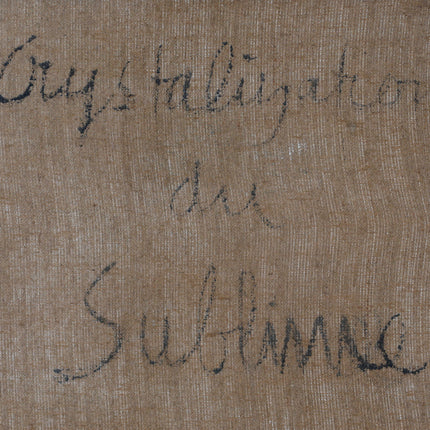 Crystalization
du
Sublime